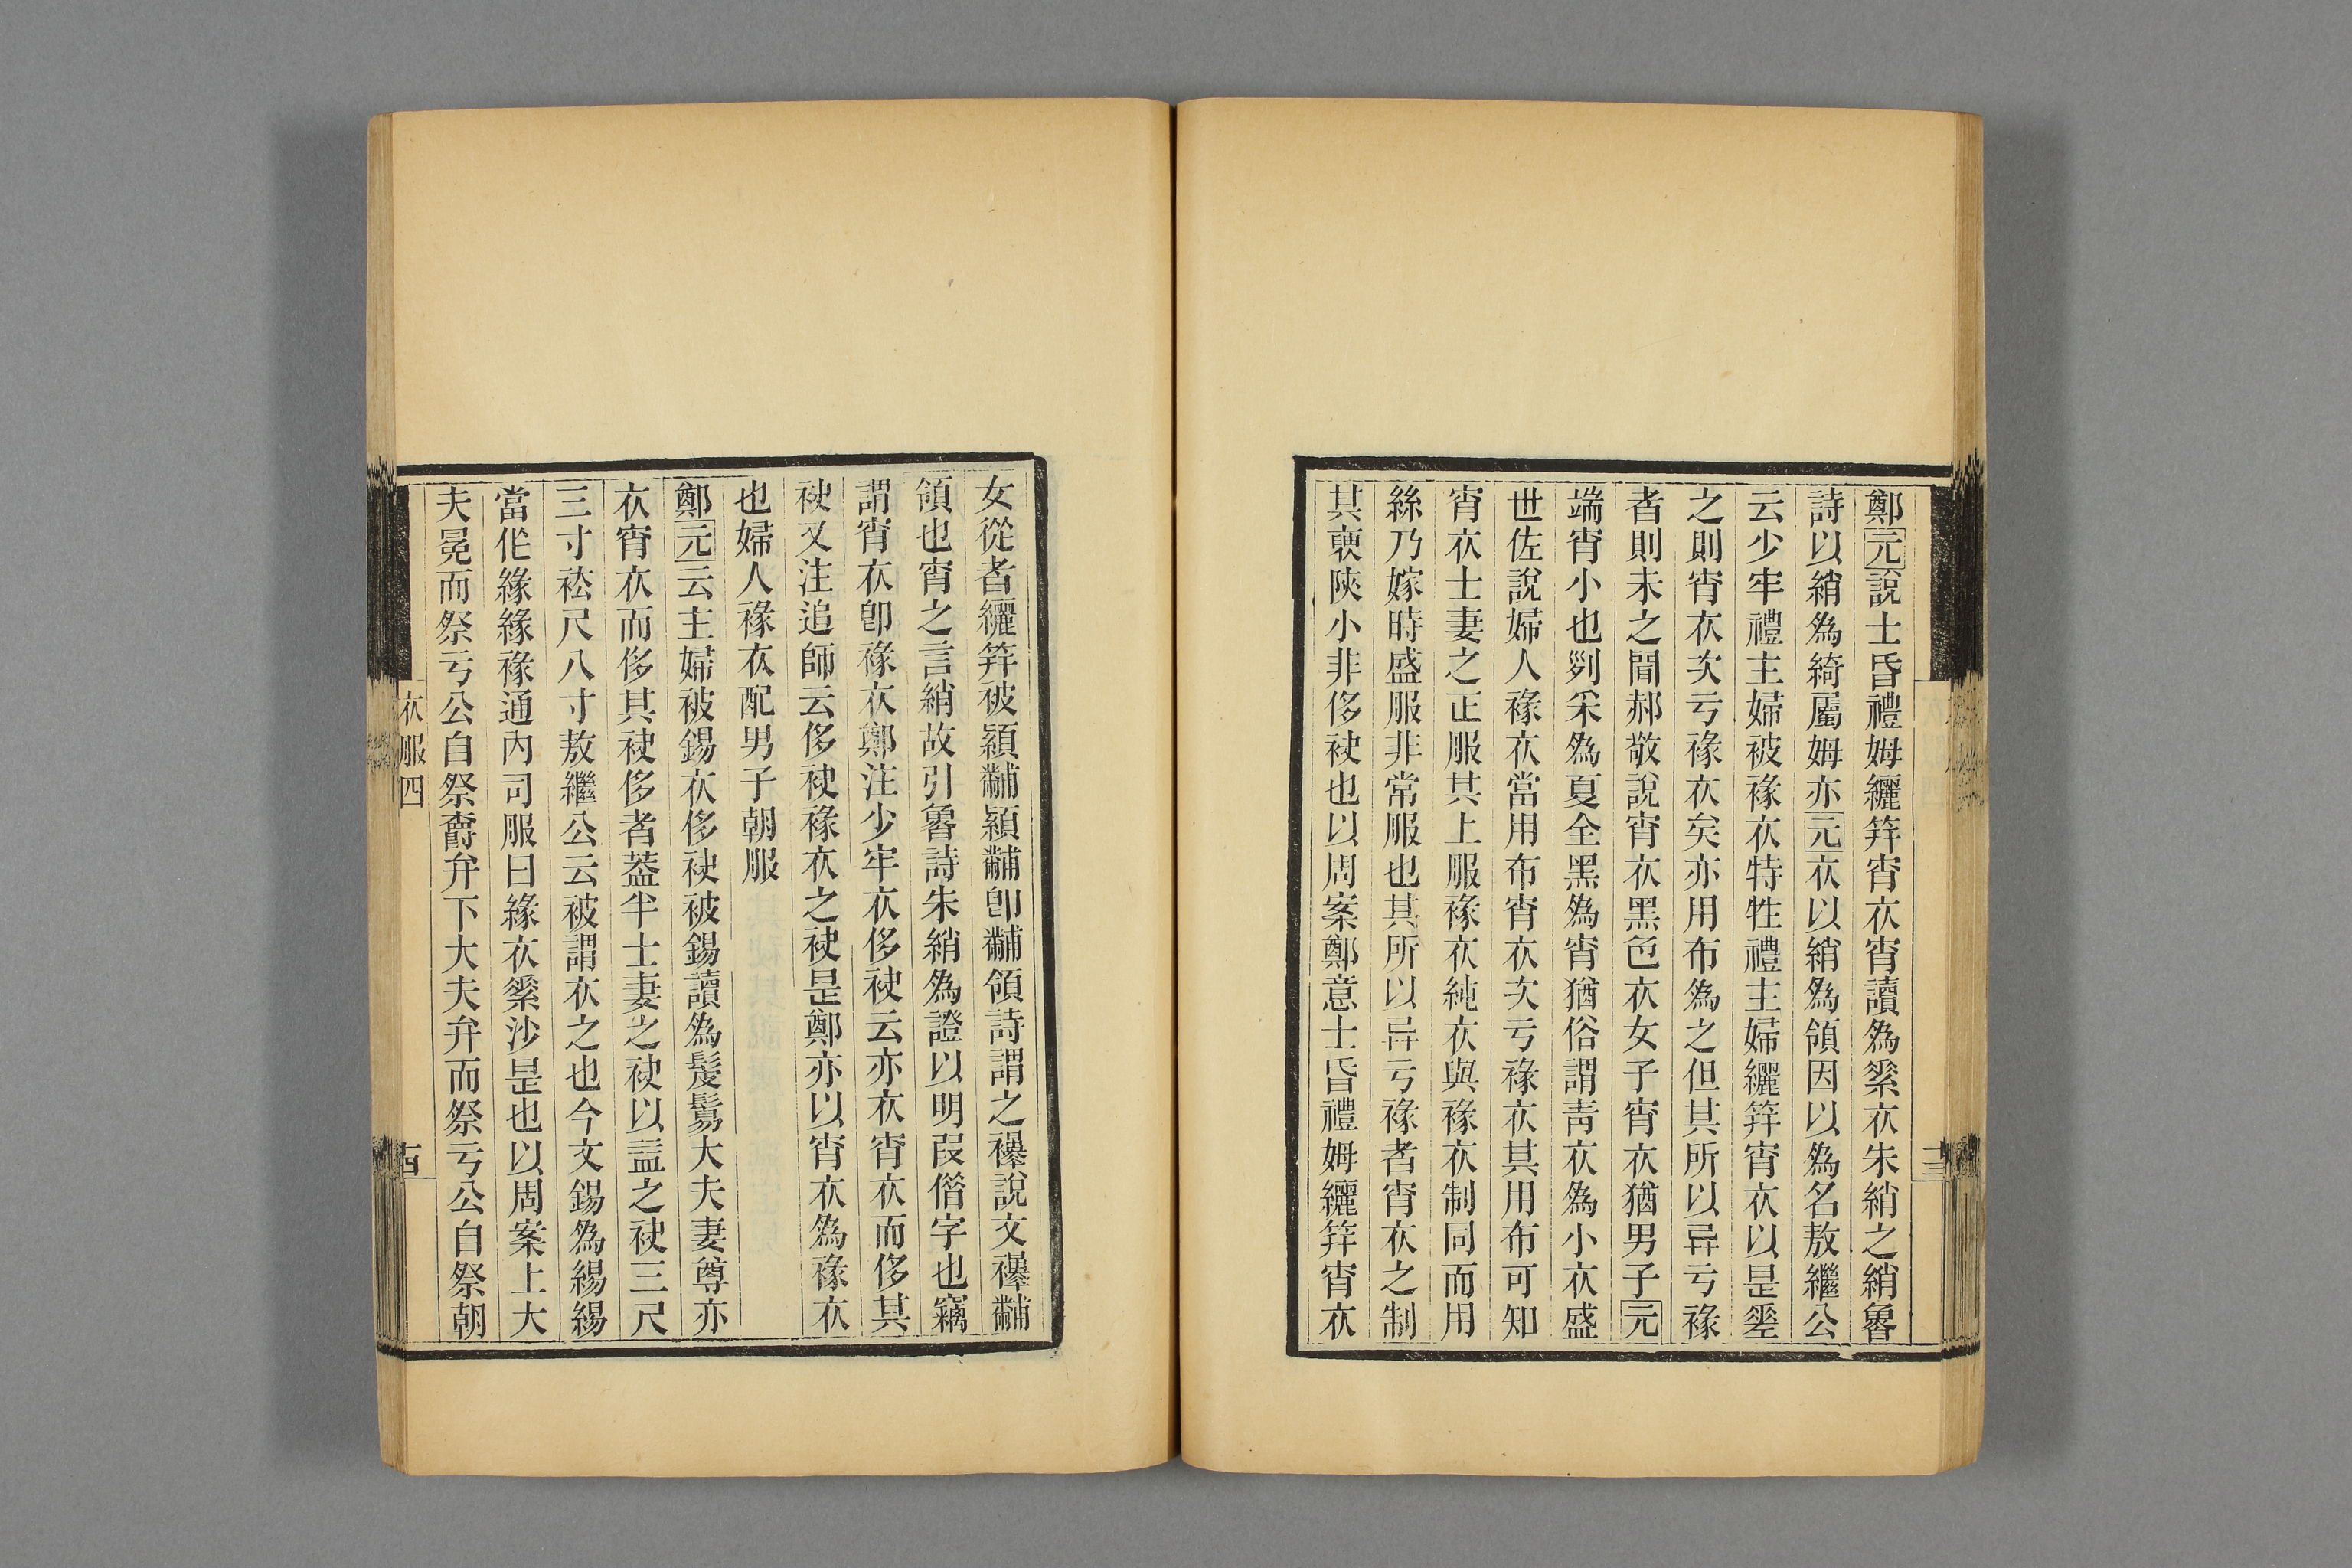 鄭元說士昏禮姆纚笄宵衣宵讀爲綤衣朱綃之綃魯
詩以綃爲綺屬姆亦元衣以綃爲領因以爲名敖繼公
云少牢禮主婦被褖衣特牲禮主婦纚笄宵衣以是差
之則宵衣次亏褖衣矣亦用布爲之但其所以异亏褖
者則未之聞郝敬說宵衣黑色衣女子宵衣猶男子元
端宵小也𠛱采爲夏全黑爲宵猶俗謂靑衣爲小衣盛
世佐說婦人褖衣當用布宵衣次亏褖衣其用布可知
宵衣士妻之正服其上服褖衣純衣與褖衣制同而用
絲乃嫁時盛服非常服也其所以异亏褖者宵衣之制
其㪅陝小非侈袂也以周案鄭意士昏禮姆纚笄宵衣
女從者纚笄被潁黼潁黼卽黼領詩謂之襮說文襮黼
領也宵之言綃故引魯詩朱綃爲證以明叚偝字也竊
謂宵衣卽褖衣鄭注少牢衣侈袂云亦衣宵衣而侈其
袂又注追師云侈袂褖衣之袂是鄭亦以宵衣爲褖衣
也婦人褖衣配男子朝服
鄭元云主婦被錫衣侈袂被錫讀爲髲鬄大夫妻尊亦
衣宵衣而侈其袂侈者葢半士妻之袂以益之袂三尺
三寸袪尺八寸敖繼公云被謂衣之也今文錫爲緆緆
當作緣緣褖通內司服曰緣衣綤沙是也以周案上大
夫冕而祭亏公自祭爵弁下大夫弁而祭亏公自祭朝
衣服四